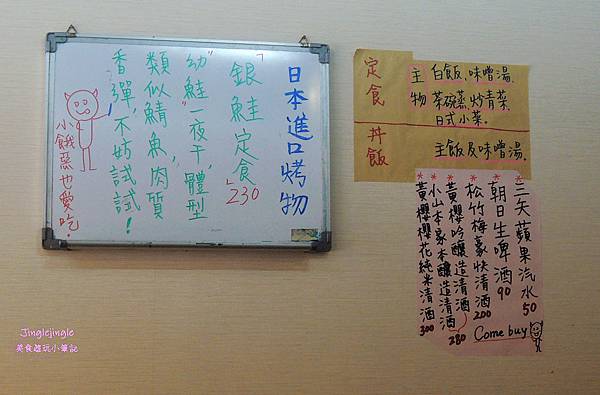 日本進口烤物
「銀鮭定食」230
"幼鮭一夜干"體型
類似鯖魚,肉質
香彈,不妨試試!
小餓惡也愛吃!
定食
主物
白飯、味噌湯、
茶碗蒸、炒青菜
日式小菜。
丼飯
主飯及味噌湯。
*三矢蘋果汽水 50
*朝日生啤酒 90
*松竹梅豪快清酒 200
*黃櫻吟釀造清酒
*小山本家本釀造清酒 280
*黃櫻櫻花純米清酒 300
Come buy
Jinglejingle
美食遊玩小筆記